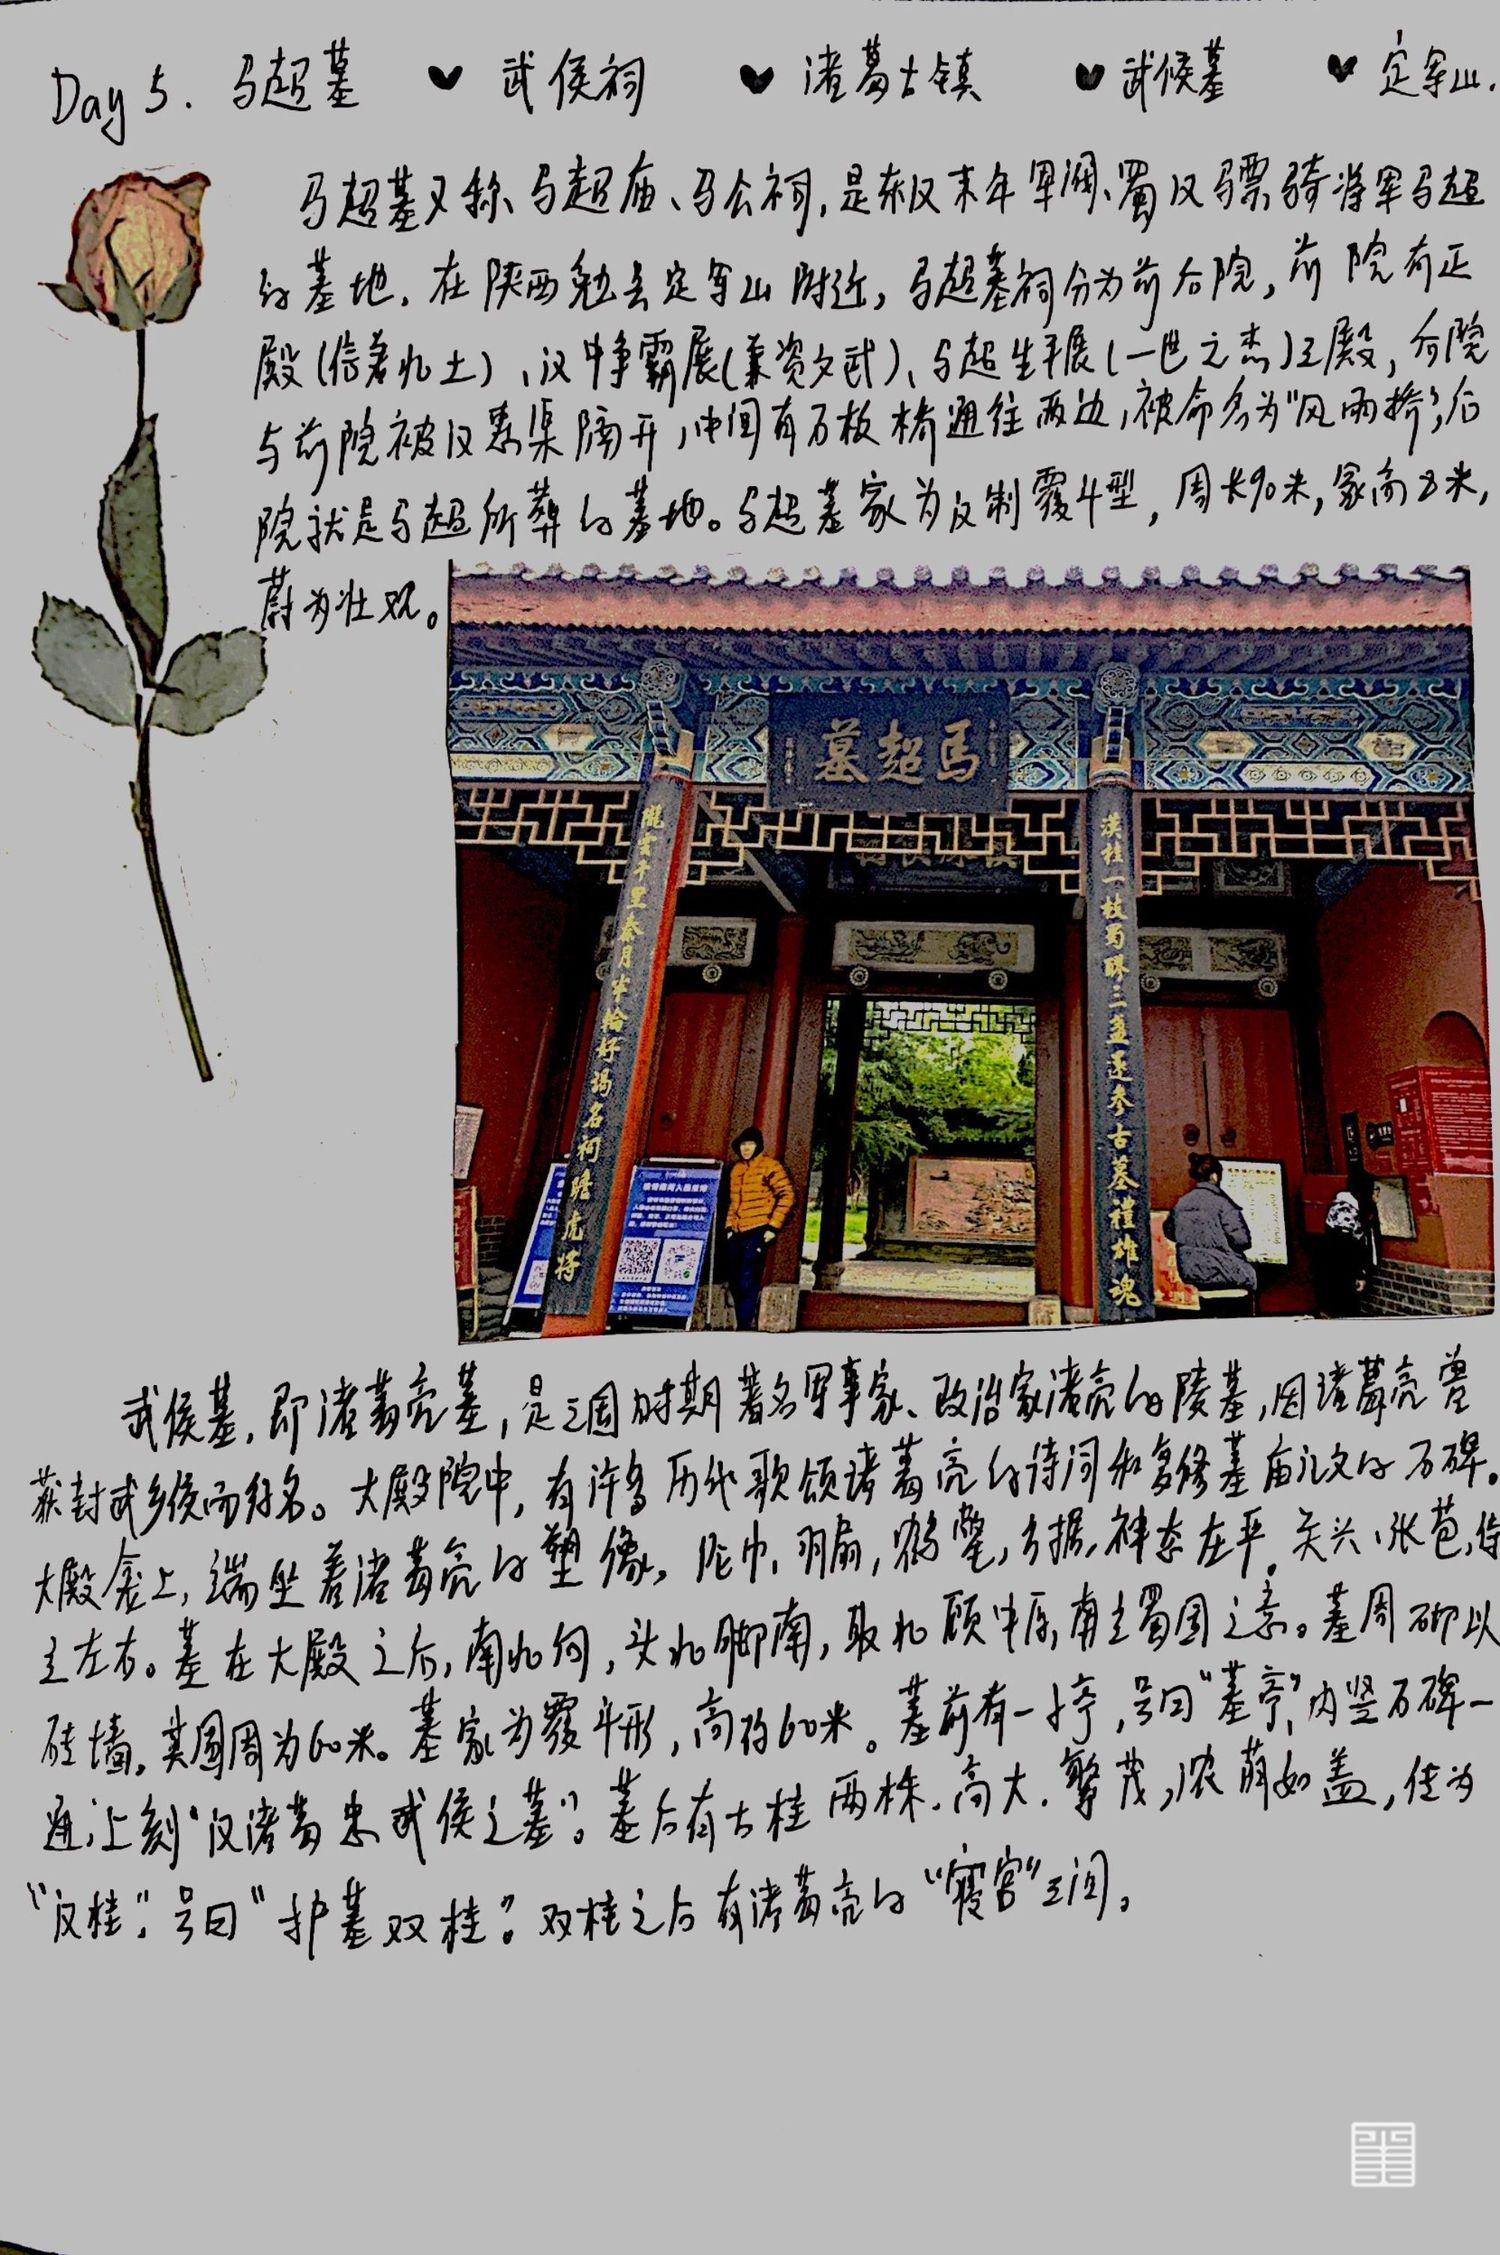 Day 5. 马超墓 ♥ 武侯祠 ♥ 诸葛古镇 ♥ 武侯墓 ♥ 定军山.
马超墓又称马超庙、马公祠,是东汉末年军阀、蜀汉骠骑将军马超
的墓地,在陕西勉县定军山附近,马超墓祠分为前后院,前院有正
殿(信著北土)、汉中争霸展(兼资文武)、马超生平展(一世之杰)三殿,后院
与前院被汉惠渠隔开,中间有石板桥通往两边,被命名为"风雨桥",后
院就是马超所葬的墓地。马超墓冢为汉制覆斗型,周长90米,冢高8米,
蔚为壮观。
馬超墓
隴雲千里秦月半輪好揭名祠瞻虎将
漢桂一枝蜀醪三盞還参古墓禮雄魂
武侯墓,即诸葛亮墓,是三国时期著名军事家、政治家诸亮的陵墓,因诸葛亮曾
获封武乡侯而得名。大殿院中,有许多历代歌颂诸葛亮的诗词和多修墓庙记文的石碑。
大殿龛上,端坐着诸葛亮的塑像,纶巾,羽扇,鹤氅,方裾,神态庄严。关兴、张苞,侍
立左右。墓在大殿之后,南北向,头北脚南,取北顾中原,南立蜀国之意。墓周砌以
砖墙,其圆周为60米。墓冢为覆斗形,高约60米。墓前有一亭,号曰"墓亭",内竖石碑一
通,上刻"汉诸葛忠武侯之墓"。墓后有古桂两株,高大,繁茂,浓荫如盖,传为
"汉桂",号曰"护墓双桂"。双桂之后有诸葛亮的"寝宫"三间。